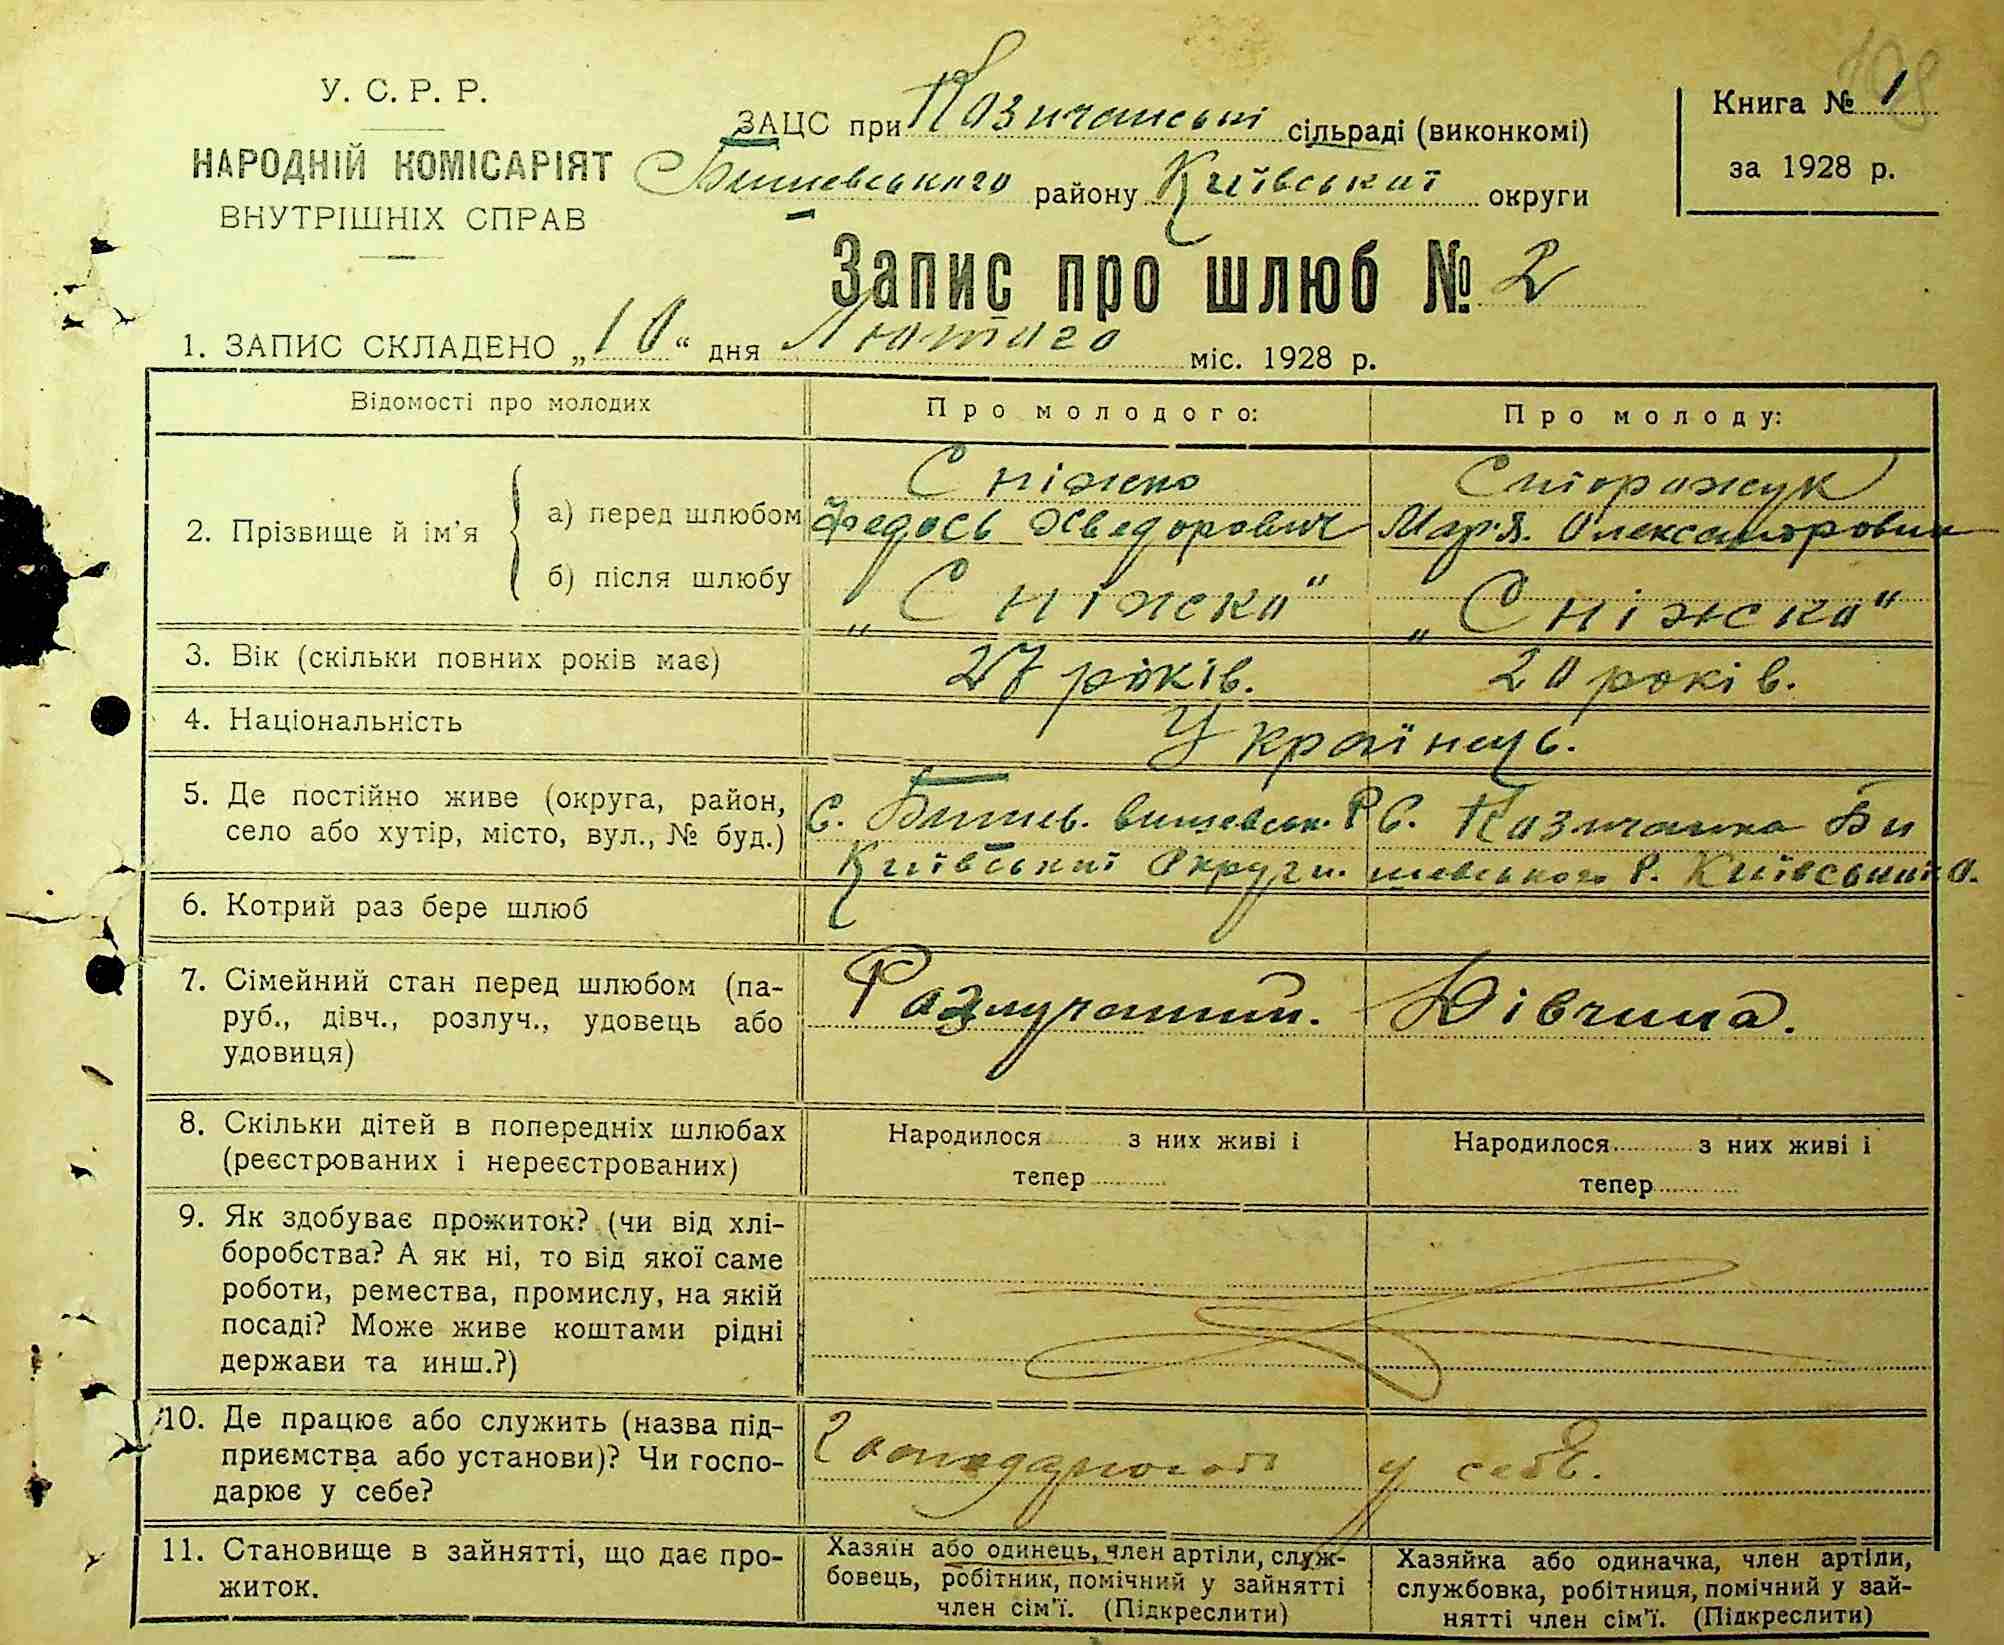 108
У. С. Р. Р.
НАРОДНІЙ КОМІСАРІЯТ
ВНУТРІШНІХ СПРАВ
ЗАЦС при Козичанські сільраді (виконкомі)
Бишевського району Київської округи
Книга № 1
за 1928 р.
Запис про шлюб № 2
1. ЗАПИС СКЛАДЕНО „10“ дня Лютого міс. 1928 р.
Відомості про молодих
Про молодого:
Про молоду:
2. Прізвище й ім'я
а) перед шлюбом
Сніжко
Федось Хведорович
Сторожук
Мар'я. Олександровна
б) після шлюбу
„Сніжко“
„Сніжко“
3. Вік (скільки повних років має)
27 років.
20 років.
4. Національність
Українець.
5. Де постійно живе (округа, район,
село або хутір, місто, вул., № буд.)
С. Бишев. Бишевськ. Р
Київської Округи.
С. Козичанка Би
шевського Р. Київської О.
6. Котрий раз бере шлюб
7. Сімейний стан перед шлюбом (па-
руб., дівч., розлуч., удовець або
удовиця)
Разлучаний.
Дівчина.
8. Скільки дітей в попередніх шлюбах
(реєстрованих і нереєстрованих)
Народилося з них живі і
тепер
Народилося з них живі і
тепер
9. Як здобуває прожиток? (чи від хлі-
боробства? А як ні, то від якої саме
роботи, ремества, промислу, на якій
посаді? Може живе коштами рідні
держави та инш.?)
10. Де працює або служить (назва під-
приємства або установи)? Чи госпо-
дарює у себе?
у себе.
11. Становище в зайнятті, що дає про-
житок.
Хазяїн або одинець, член артіли, служ-
бовець, робітник, помічний у зайнятті
член сім'ї. (Підкреслити)
Хазяйка або одиначка, член артіли,
службовка, робітниця, помічний у зай-
нятті член сім'ї. (Підкреслити)